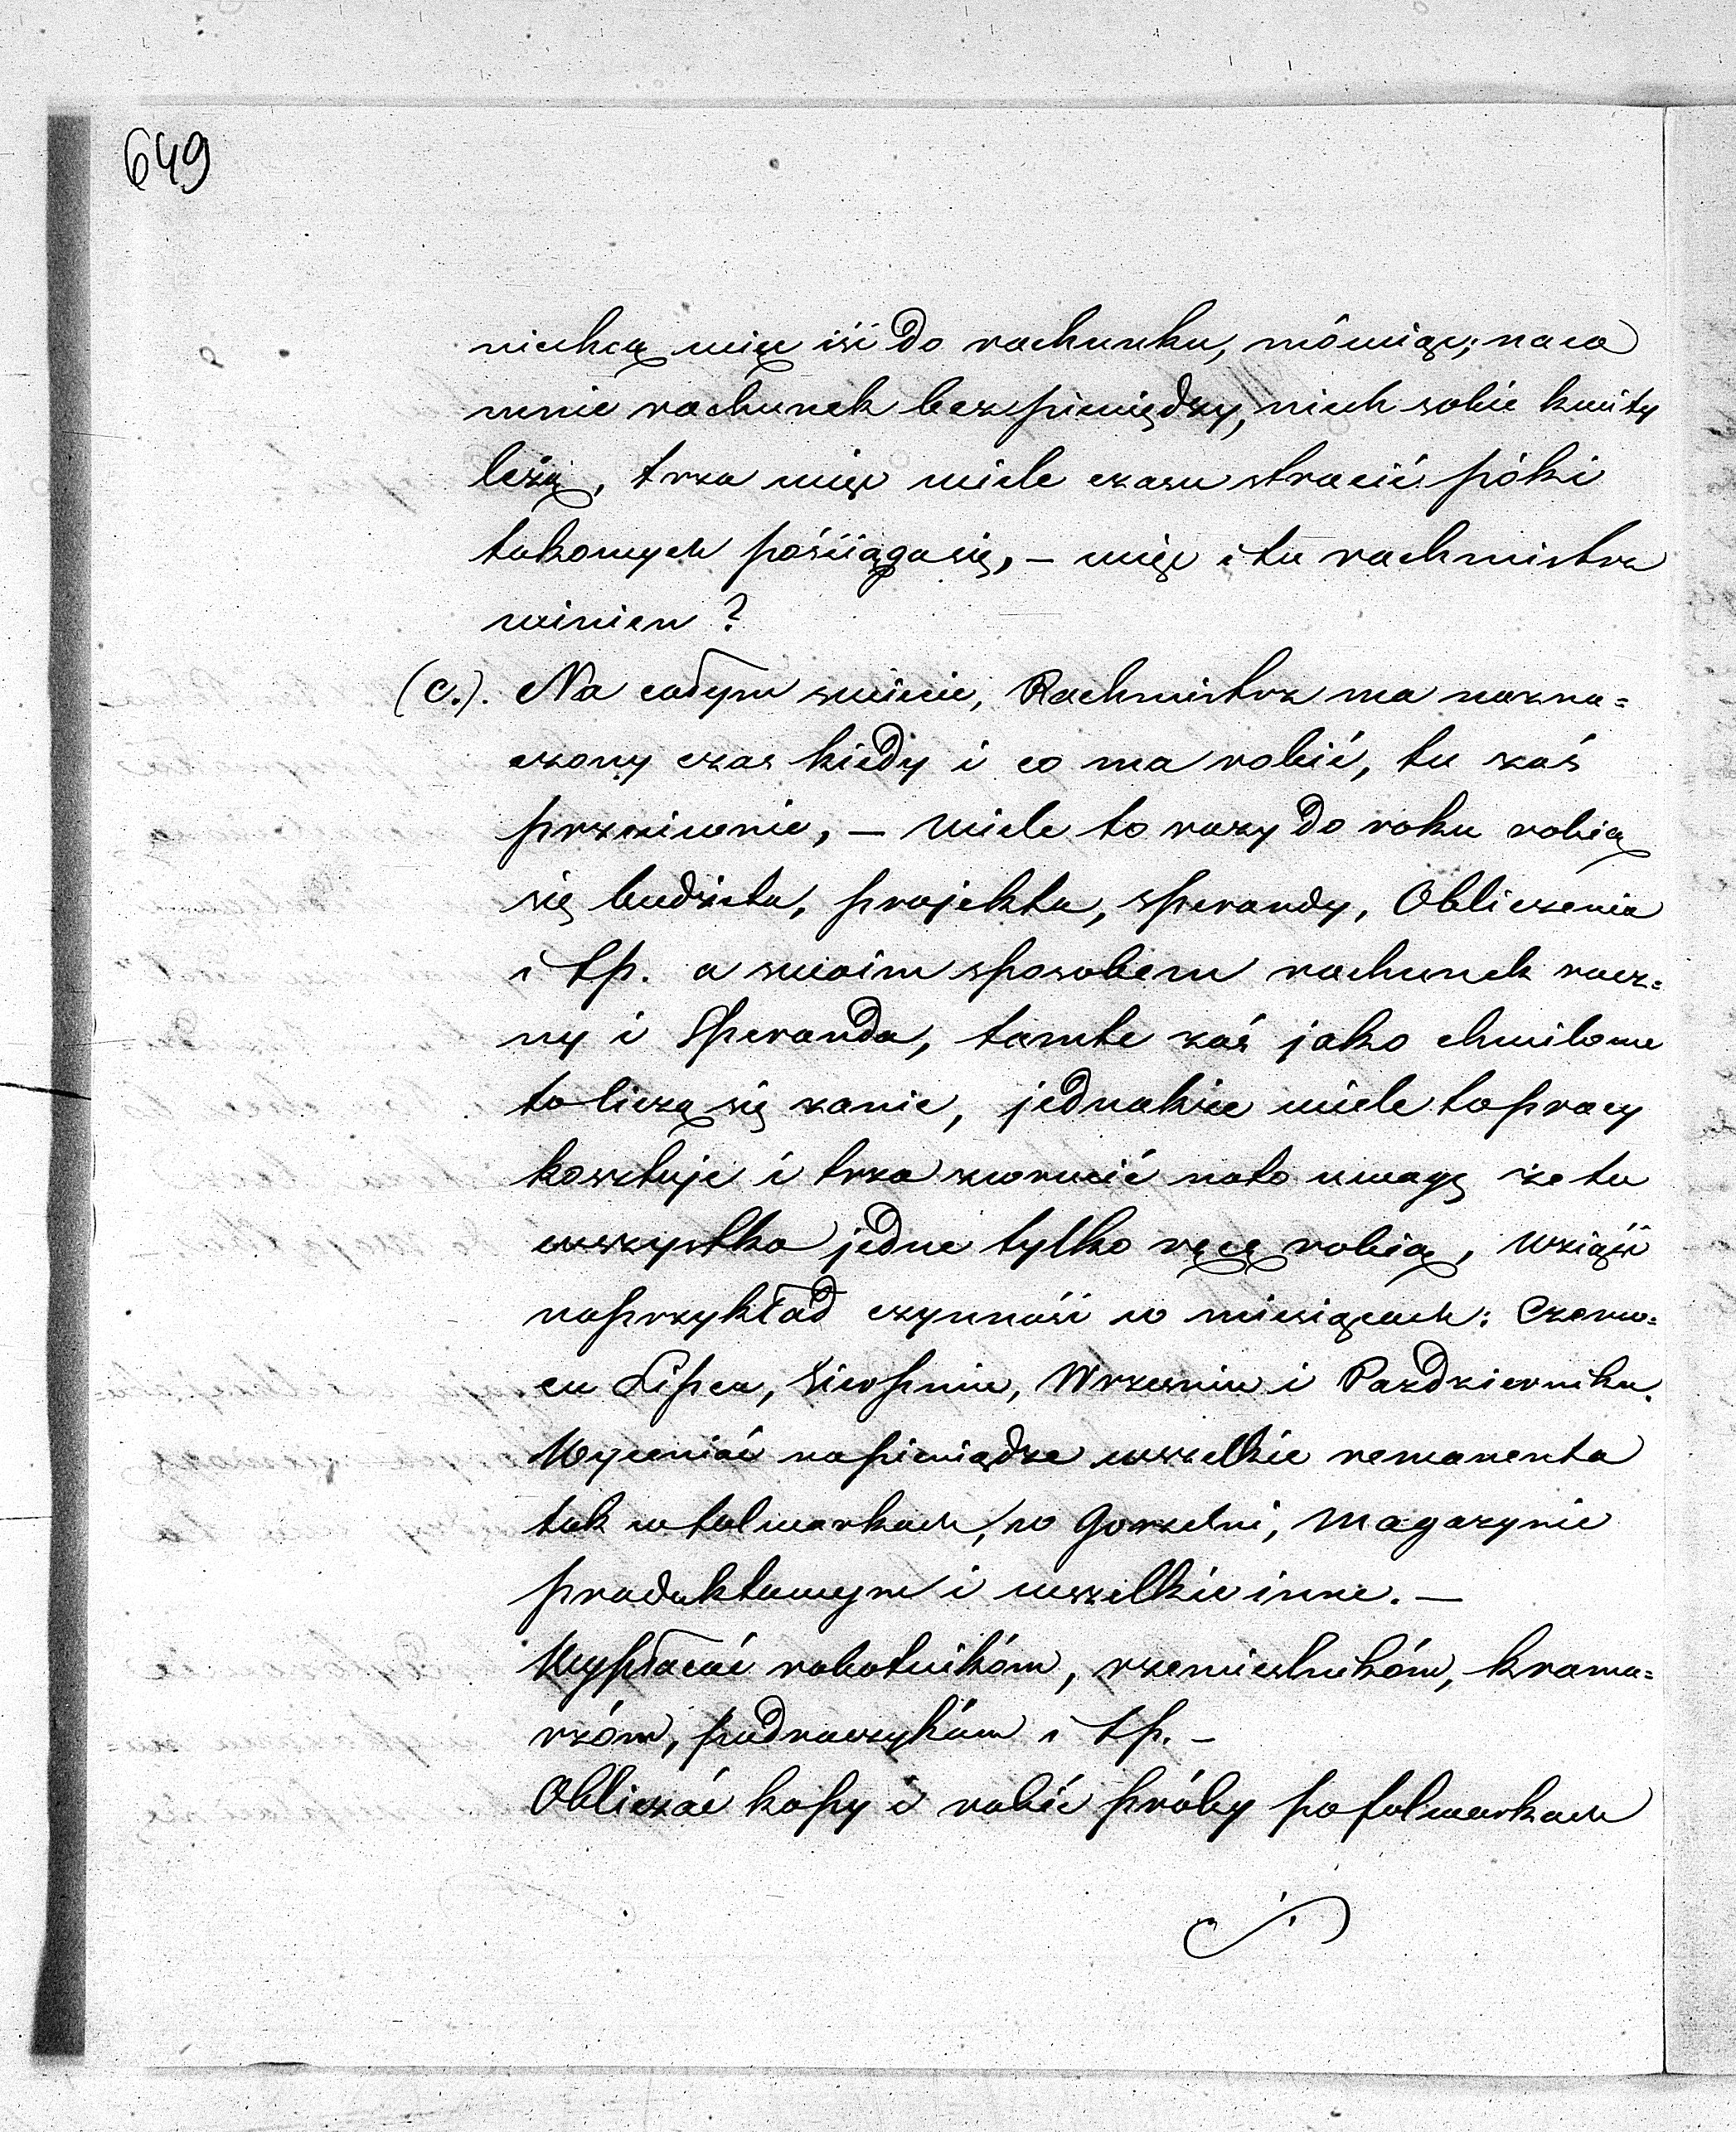 649
niechcą więc iść do rachunku, mówiąc; naco
mnie rachunek bez pieniędzy, niech sobie kwity
leżą, trza więc wiele czasu stracić póki
takowych pościąga się, – więc i tu rachmistrz
winien?
(c.). Na całym świecie, Rachmistrz ma nazna=
czony czas kiedy i co ma robić, tu zaś
przeciwnie, – Wiele to razy do roku robią
się budżeta, projekta, sperandy, Obliczenia
i tp. a swoim sposobem rachunek rocz=
ny i Speranda, tamte zaś jako chwilowe
to liczą się zanic, jednakże wiele to pracy
kosztuje i trza zwrucić nato uwagę że tu
wszystko jedne tylko ręce robią, Wziąść
naprzykład czynność w miesiącach: Czerw=
cu Lipcu, Sierpniu, Wrześniu i Pazdzierniku.
Wyceniać napieniądze wszelkie remanenta
tak w folwarkach, w Gorzelni, Magazynie
produktowym i wszelkie inne. –
Wypłacać robotnikóm, rzemieslnikóm, krama=
rzóm, podraczykóm i tp. –
Obliczać kopy i robić próby po folwarkach